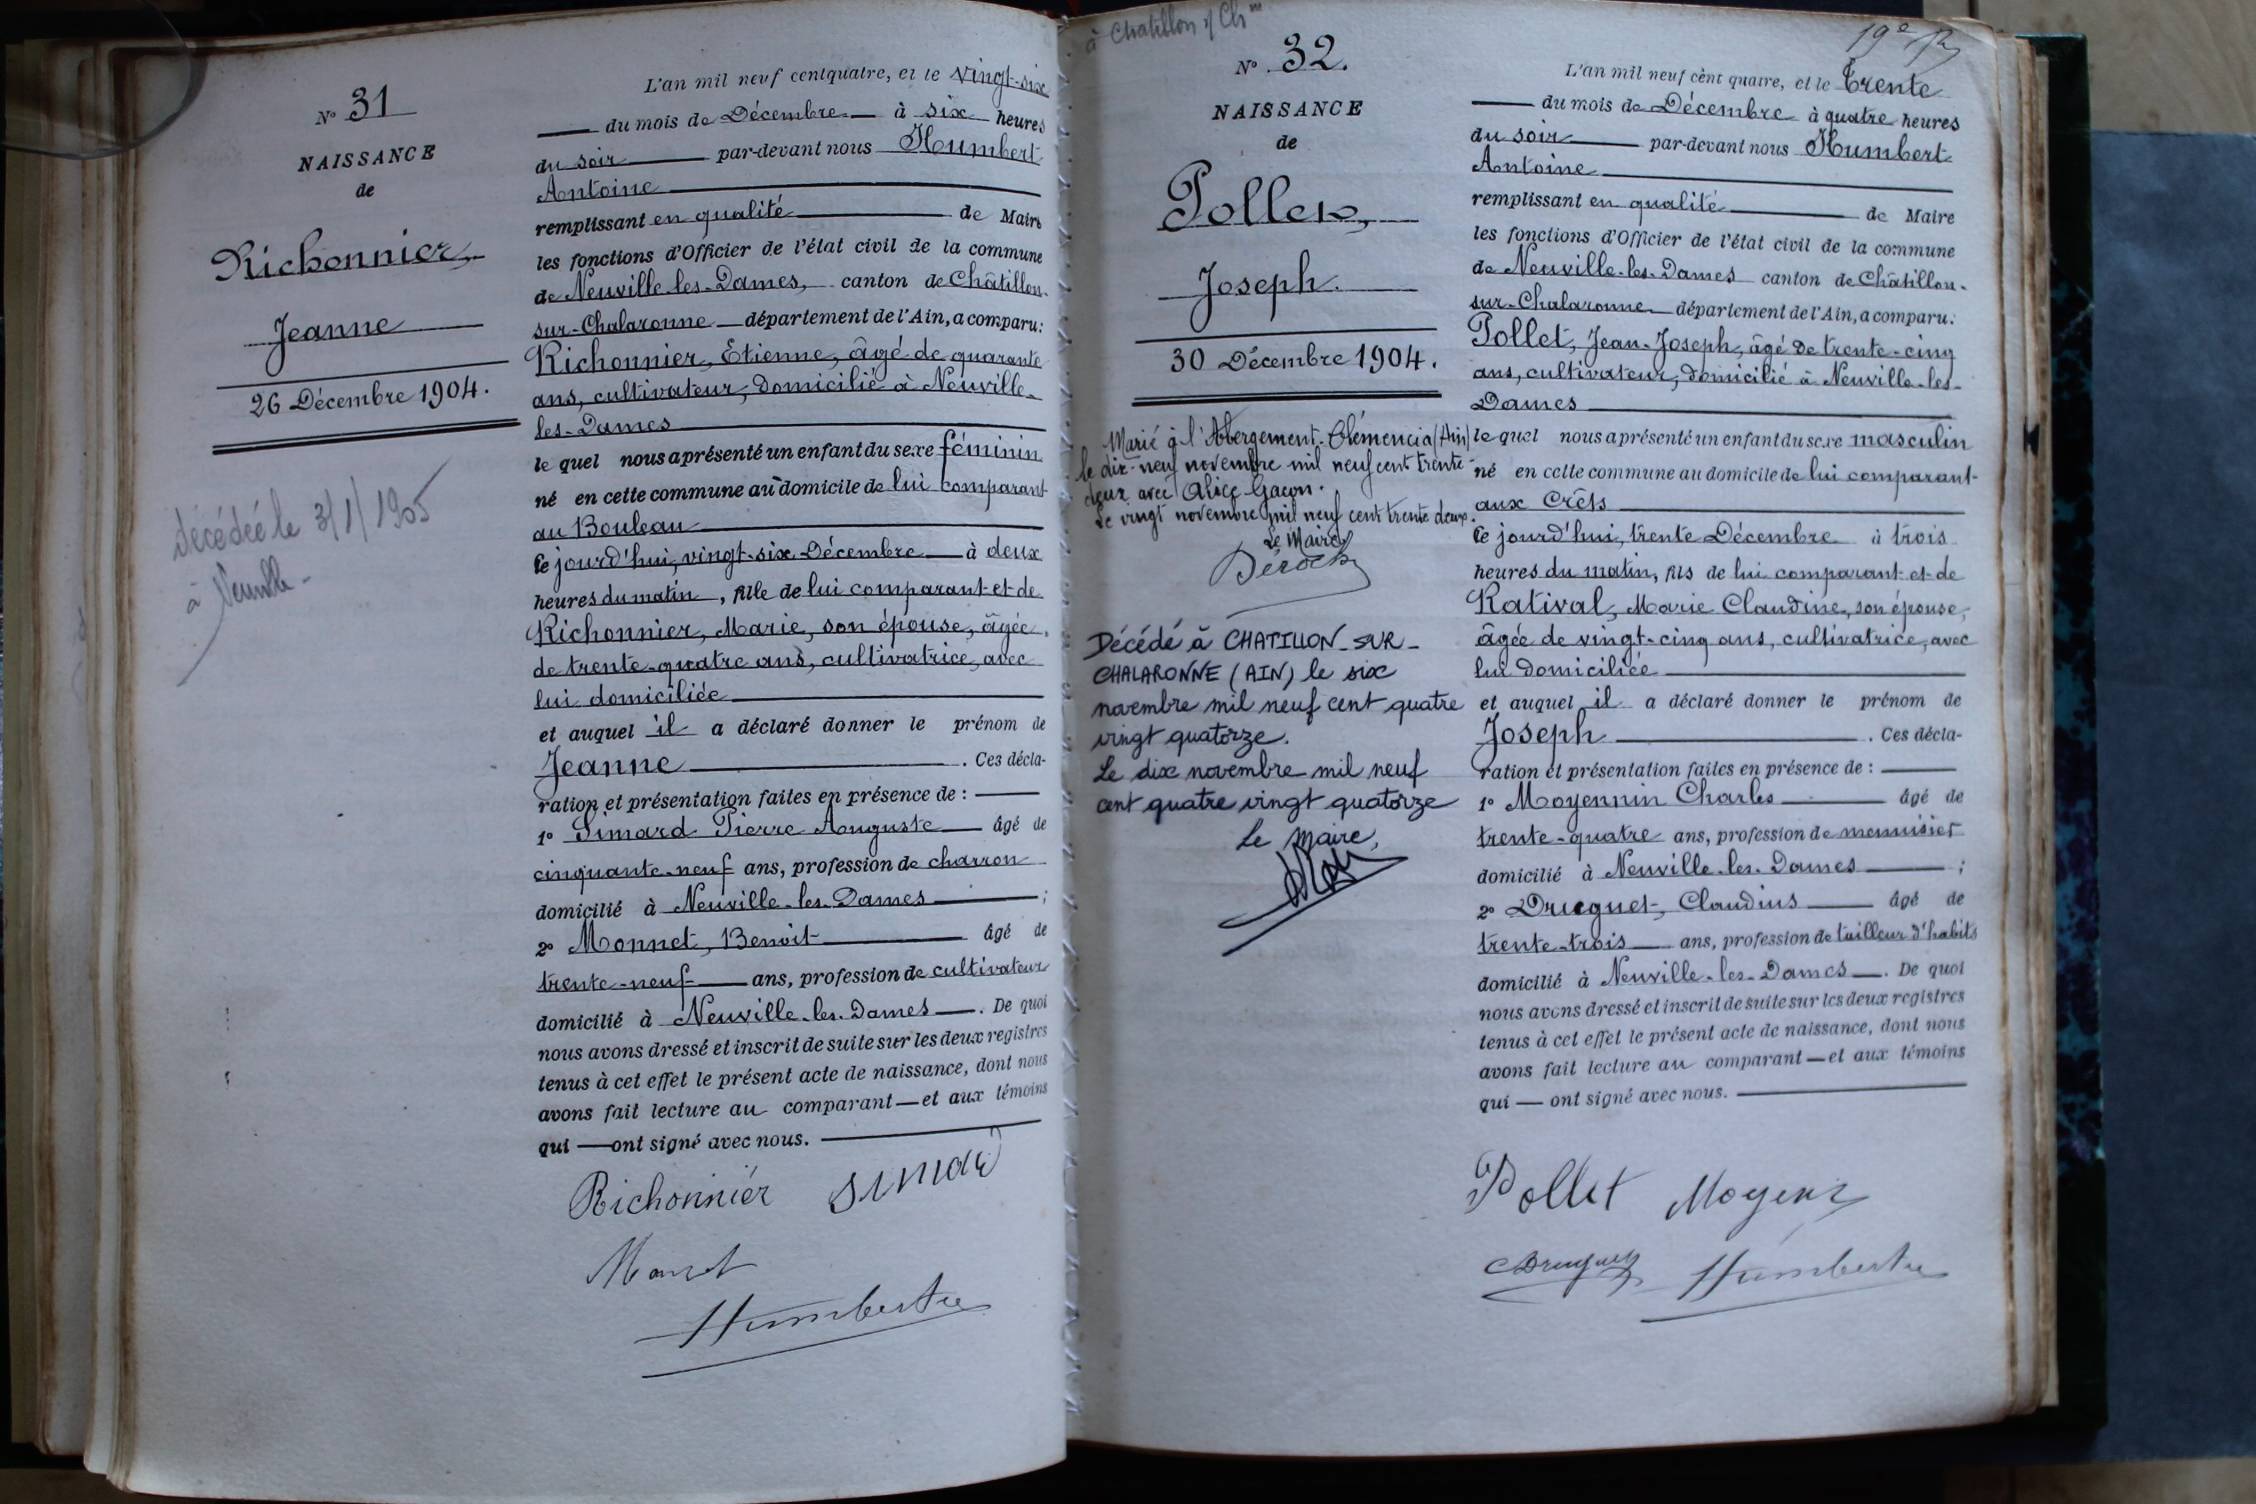 N° 31
NAISSANCE
de
Richonnier,
Jeanne
26 Décembre 1904.
décédée le 3/1/1905
à Neuville
L'an mil neuf cent quatre, et le vingt-six
du mois de Décembre à six heures
du soir par-devant nous Humbert
Antoine
remplissant en qualité de Maire
les fonctions d'Officier de l'état civil de la commune
de Neuville-les-Dames, canton de Châtillon-
sur-Chalaronne département de l'Ain, a comparu:
Richonnier, Etienne, âgé de quarante
ans, cultivateur, domicilié à Neuville-
les-Dames
le quel nous a présenté un enfant du sexe féminin
né en cette commune au domicile de lui comparant
au Bouleau
ce jourd'hui, vingt-six Décembre à deux
heures du matin, fille de lui comparant et de
Richonnier, Marie, son épouse, âgée
de trente-quatre ans, cultivatrice, avec
lui domiciliée
et auquel il a déclaré donner le prénom de
Jeanne . Ces décla-
ration et présentation faites en présence de :
1° Simard Pierre Auguste âgé de
cinquante-neuf ans, profession de charron
domicilié à Neuville-les-Dames ;
2° Monnet, Benoit âgé de
trente-neuf ans, profession de cultivateur
domicilié à Neuville-les-Dames . De quoi
nous avons dressé et inscrit de suite sur les deux registres
tenus à cet effet le présent acte de naissance, dont nous
avons fait lecture au comparant et aux témoins
qui ont signé avec nous.
Richonnier Simard
Monet
Humbert
à Chatillon s/ Ch
N° 32.
NAISSANCE
de
Pollet,
Joseph.
30 Décembre 1904.
Marié à l'Abergement-Clémencia (Ain)
le dix-neuf novembre mil neuf cent trente-
deux avec Alice Gacon.
Le vingt novembre mil neuf cent trente deux.
Le Maire
Décédé à CHATILLON-SUR-
CHALARONNE (AIN) le six
novembre mil neuf cent quatre
vingt quatorze.
Le dix novembre mil neuf
cent quatre vingt quatorze
Le Maire,
19e
L'an mil neuf cent quatre, et le trente
du mois de Décembre à quatre heures
du soir par-devant nous Humbert
Antoine
remplissant en qualité de Maire
les fonctions d'Officier de l'état civil de la commune
de Neuville-les-Dames canton de Châtillon-
sur-Chalaronne département de l'Ain, a comparu:
Pollet, Jean-Joseph, âgé de trente-cinq
ans, cultivateur, domicilié à Neuville-les-
Dames
le quel nous a présenté un enfant du sexe masculin
né en cette commune au domicile de lui comparant
aux Crêts
ce jourd'hui, trente Décembre à trois
heures du matin, fils de lui comparant et de
Ratival, Marie Claudine, son épouse,
âgée de vingt-cinq ans, cultivatrice, avec
lui domiciliée
et auquel il a déclaré donner le prénom de
Joseph . Ces décla-
ration et présentation faites en présence de :
1° Moyennin Charles âgé de
trente-quatre ans, profession de menuisier
domicilié à Neuville-les-Dames ;
2° Druguet, Claudius âgé de
trente-trois ans, profession de tailleur d'habits
domicilié à Neuville-les-Dames . De quoi
nous avons dressé et inscrit de suite sur les deux registres
tenus à cet effet le présent acte de naissance, dont nous
avons fait lecture au comparant et aux témoins
qui ont signé avec nous.
Pollet
Druguet Humbert